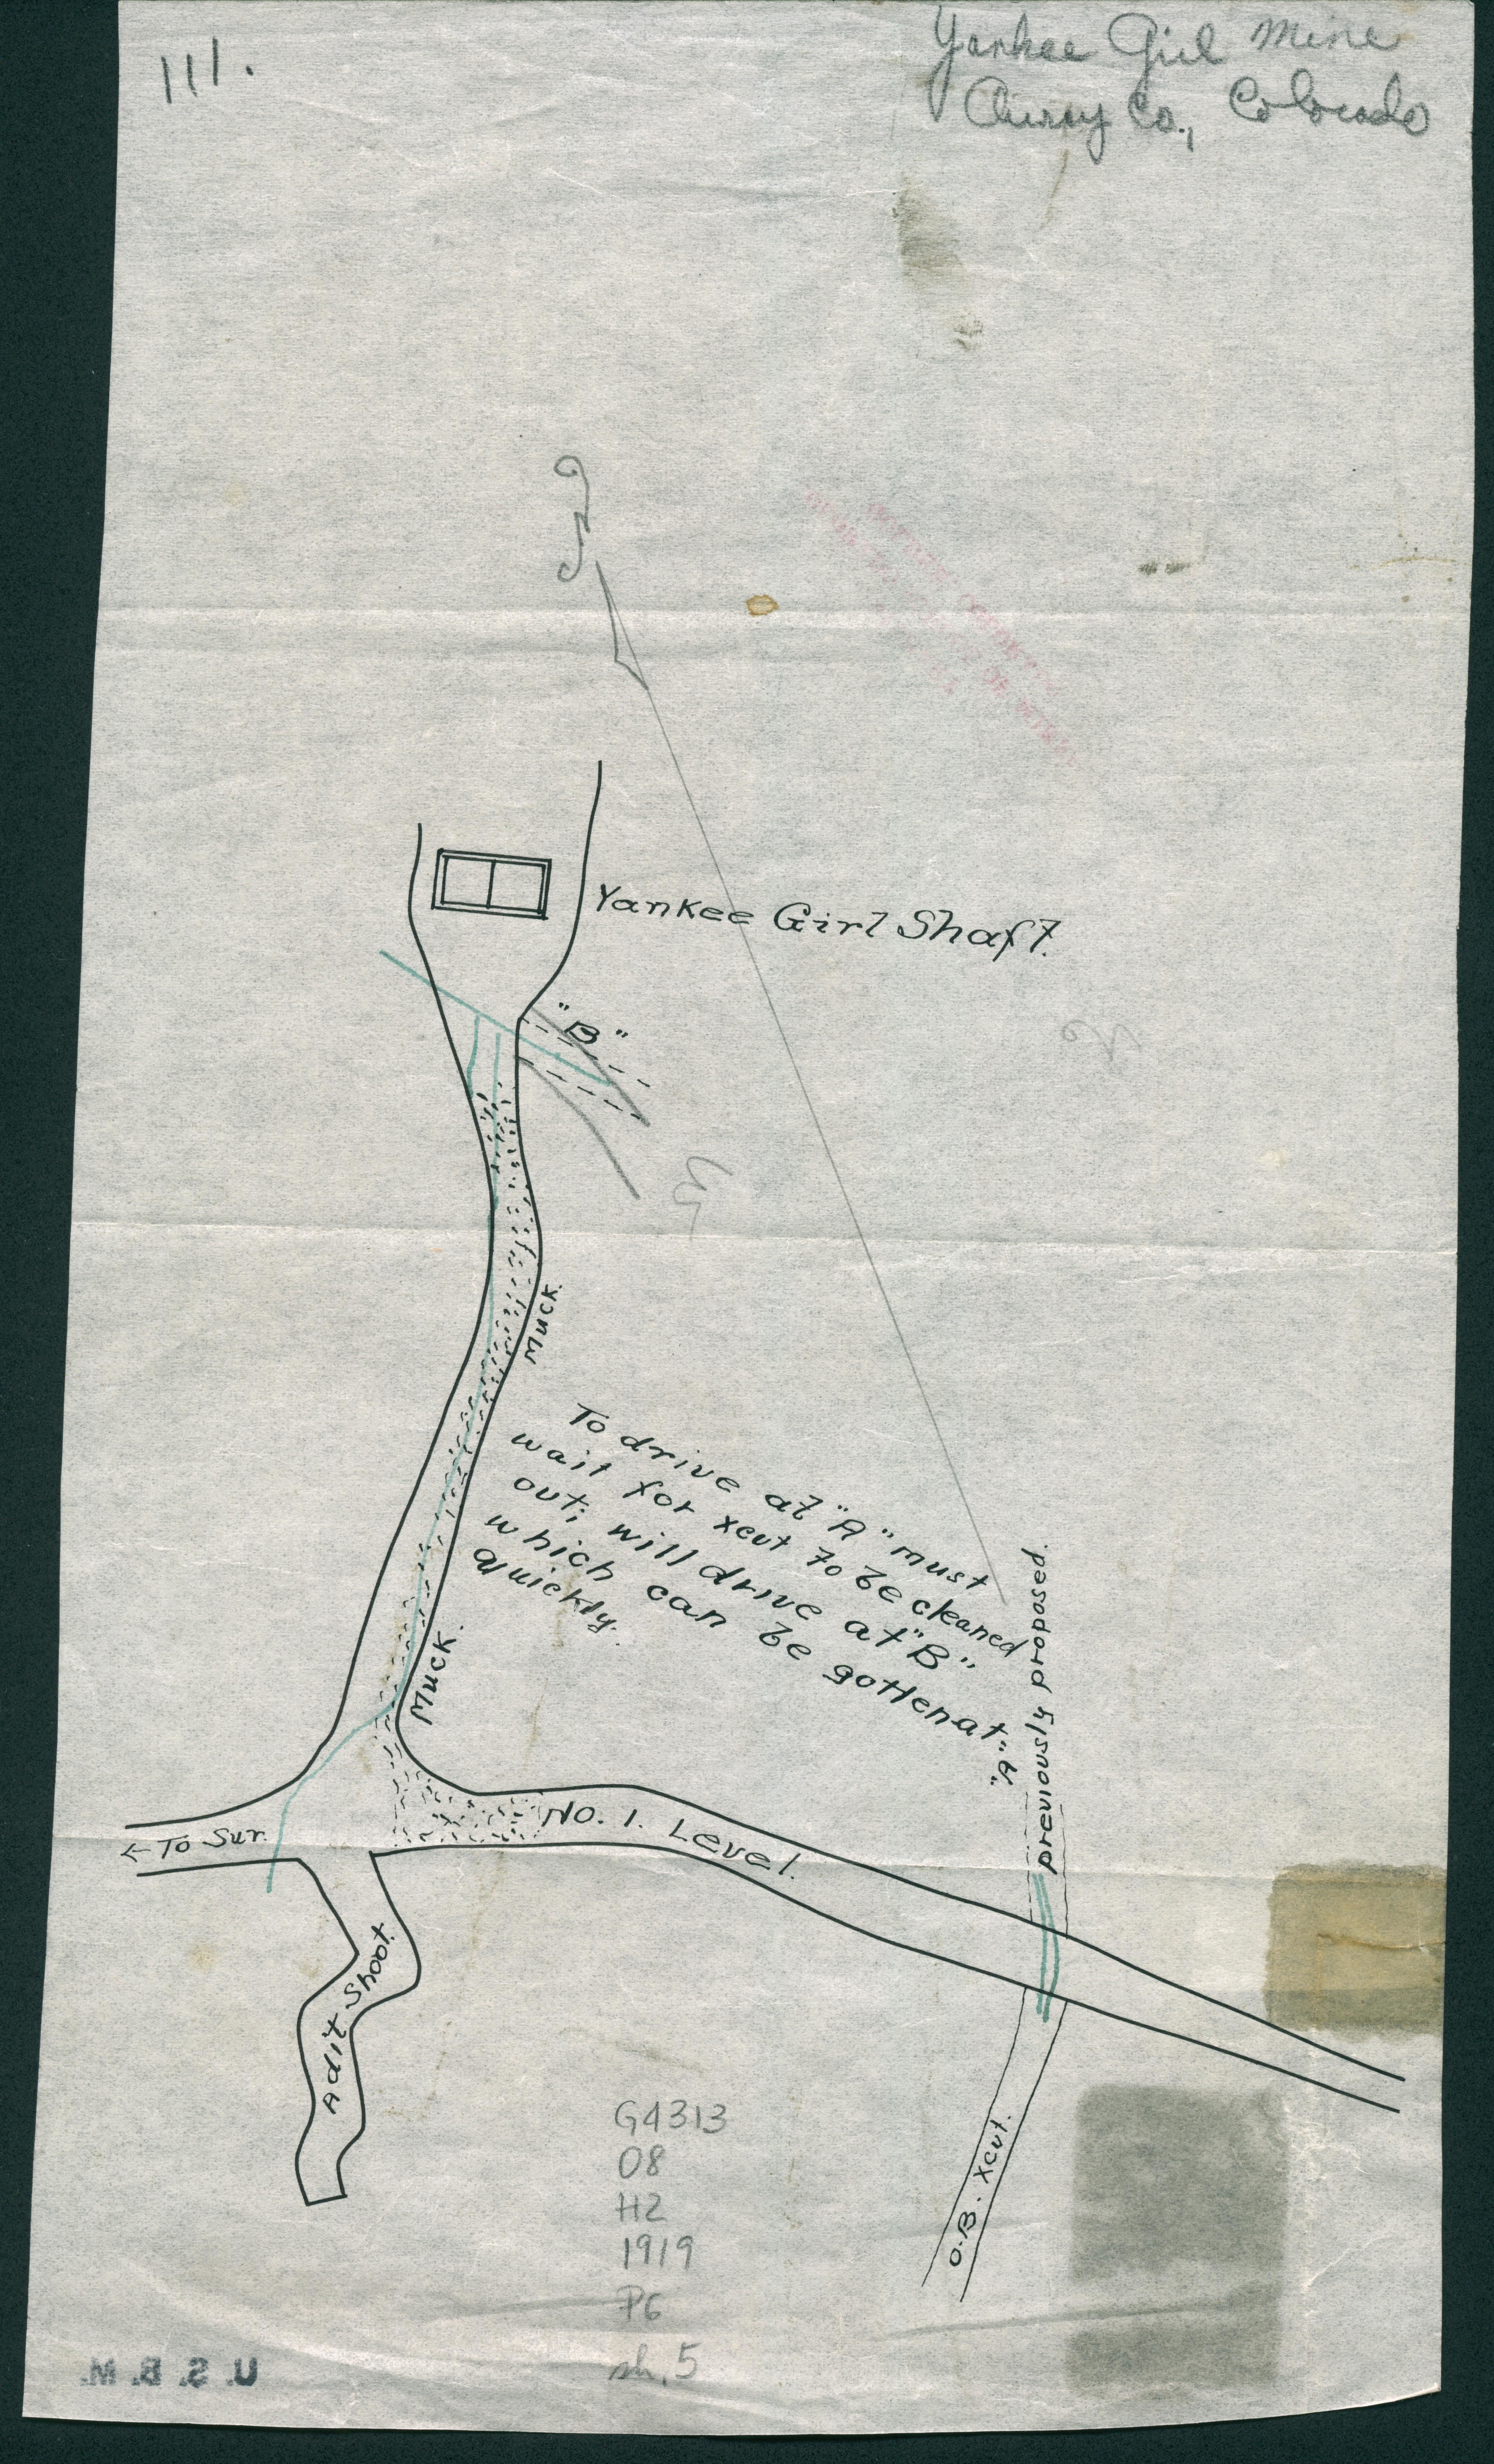 111.
Yankee Girl Mine
Ouray Co., Colorado
Yankee Girl Shaft.
"B"
Muck.
To drive at "A" must
wait for xcut to be cleaned
out; will drive at "B"
which can be gotten at
quickly.
Muck.
"A"
previously proposed.
No. 1. Level.
← To Sur.
Adit Shoot.
O.B. xcut.
G4313
O8
H2
1919
P6
sh. 5
U. S. B. M.